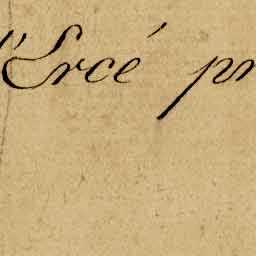 "Ercé pr